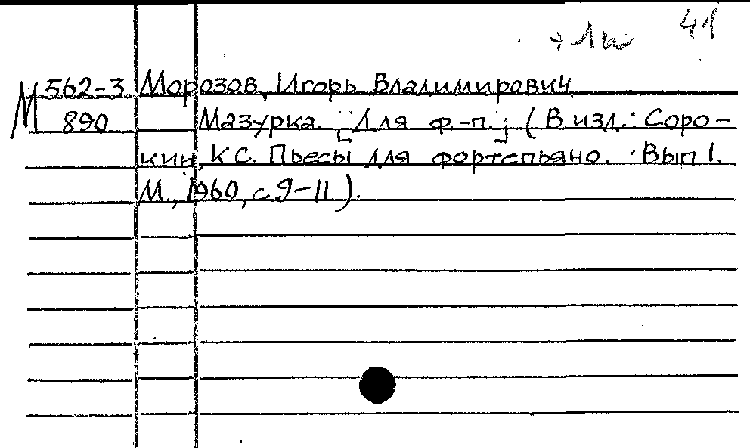 41
М 562-3 Морозов, Игорь Владимирович
890 Мазурка. [Для ф.-п.] (В изд.: Соро-
кин, К С. Пьесы для фортепьяно. Вып 1.
М., 1960, с 9-11).